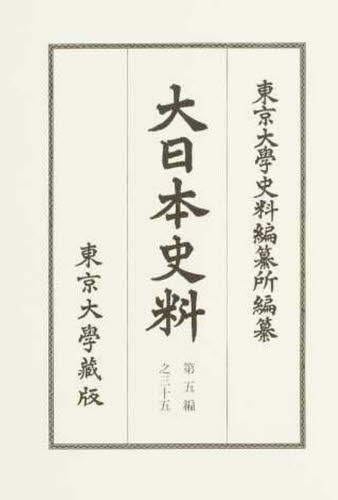 東京大學史料編纂所編纂
大日本史料
第五編
之三十五
東京大學藏版